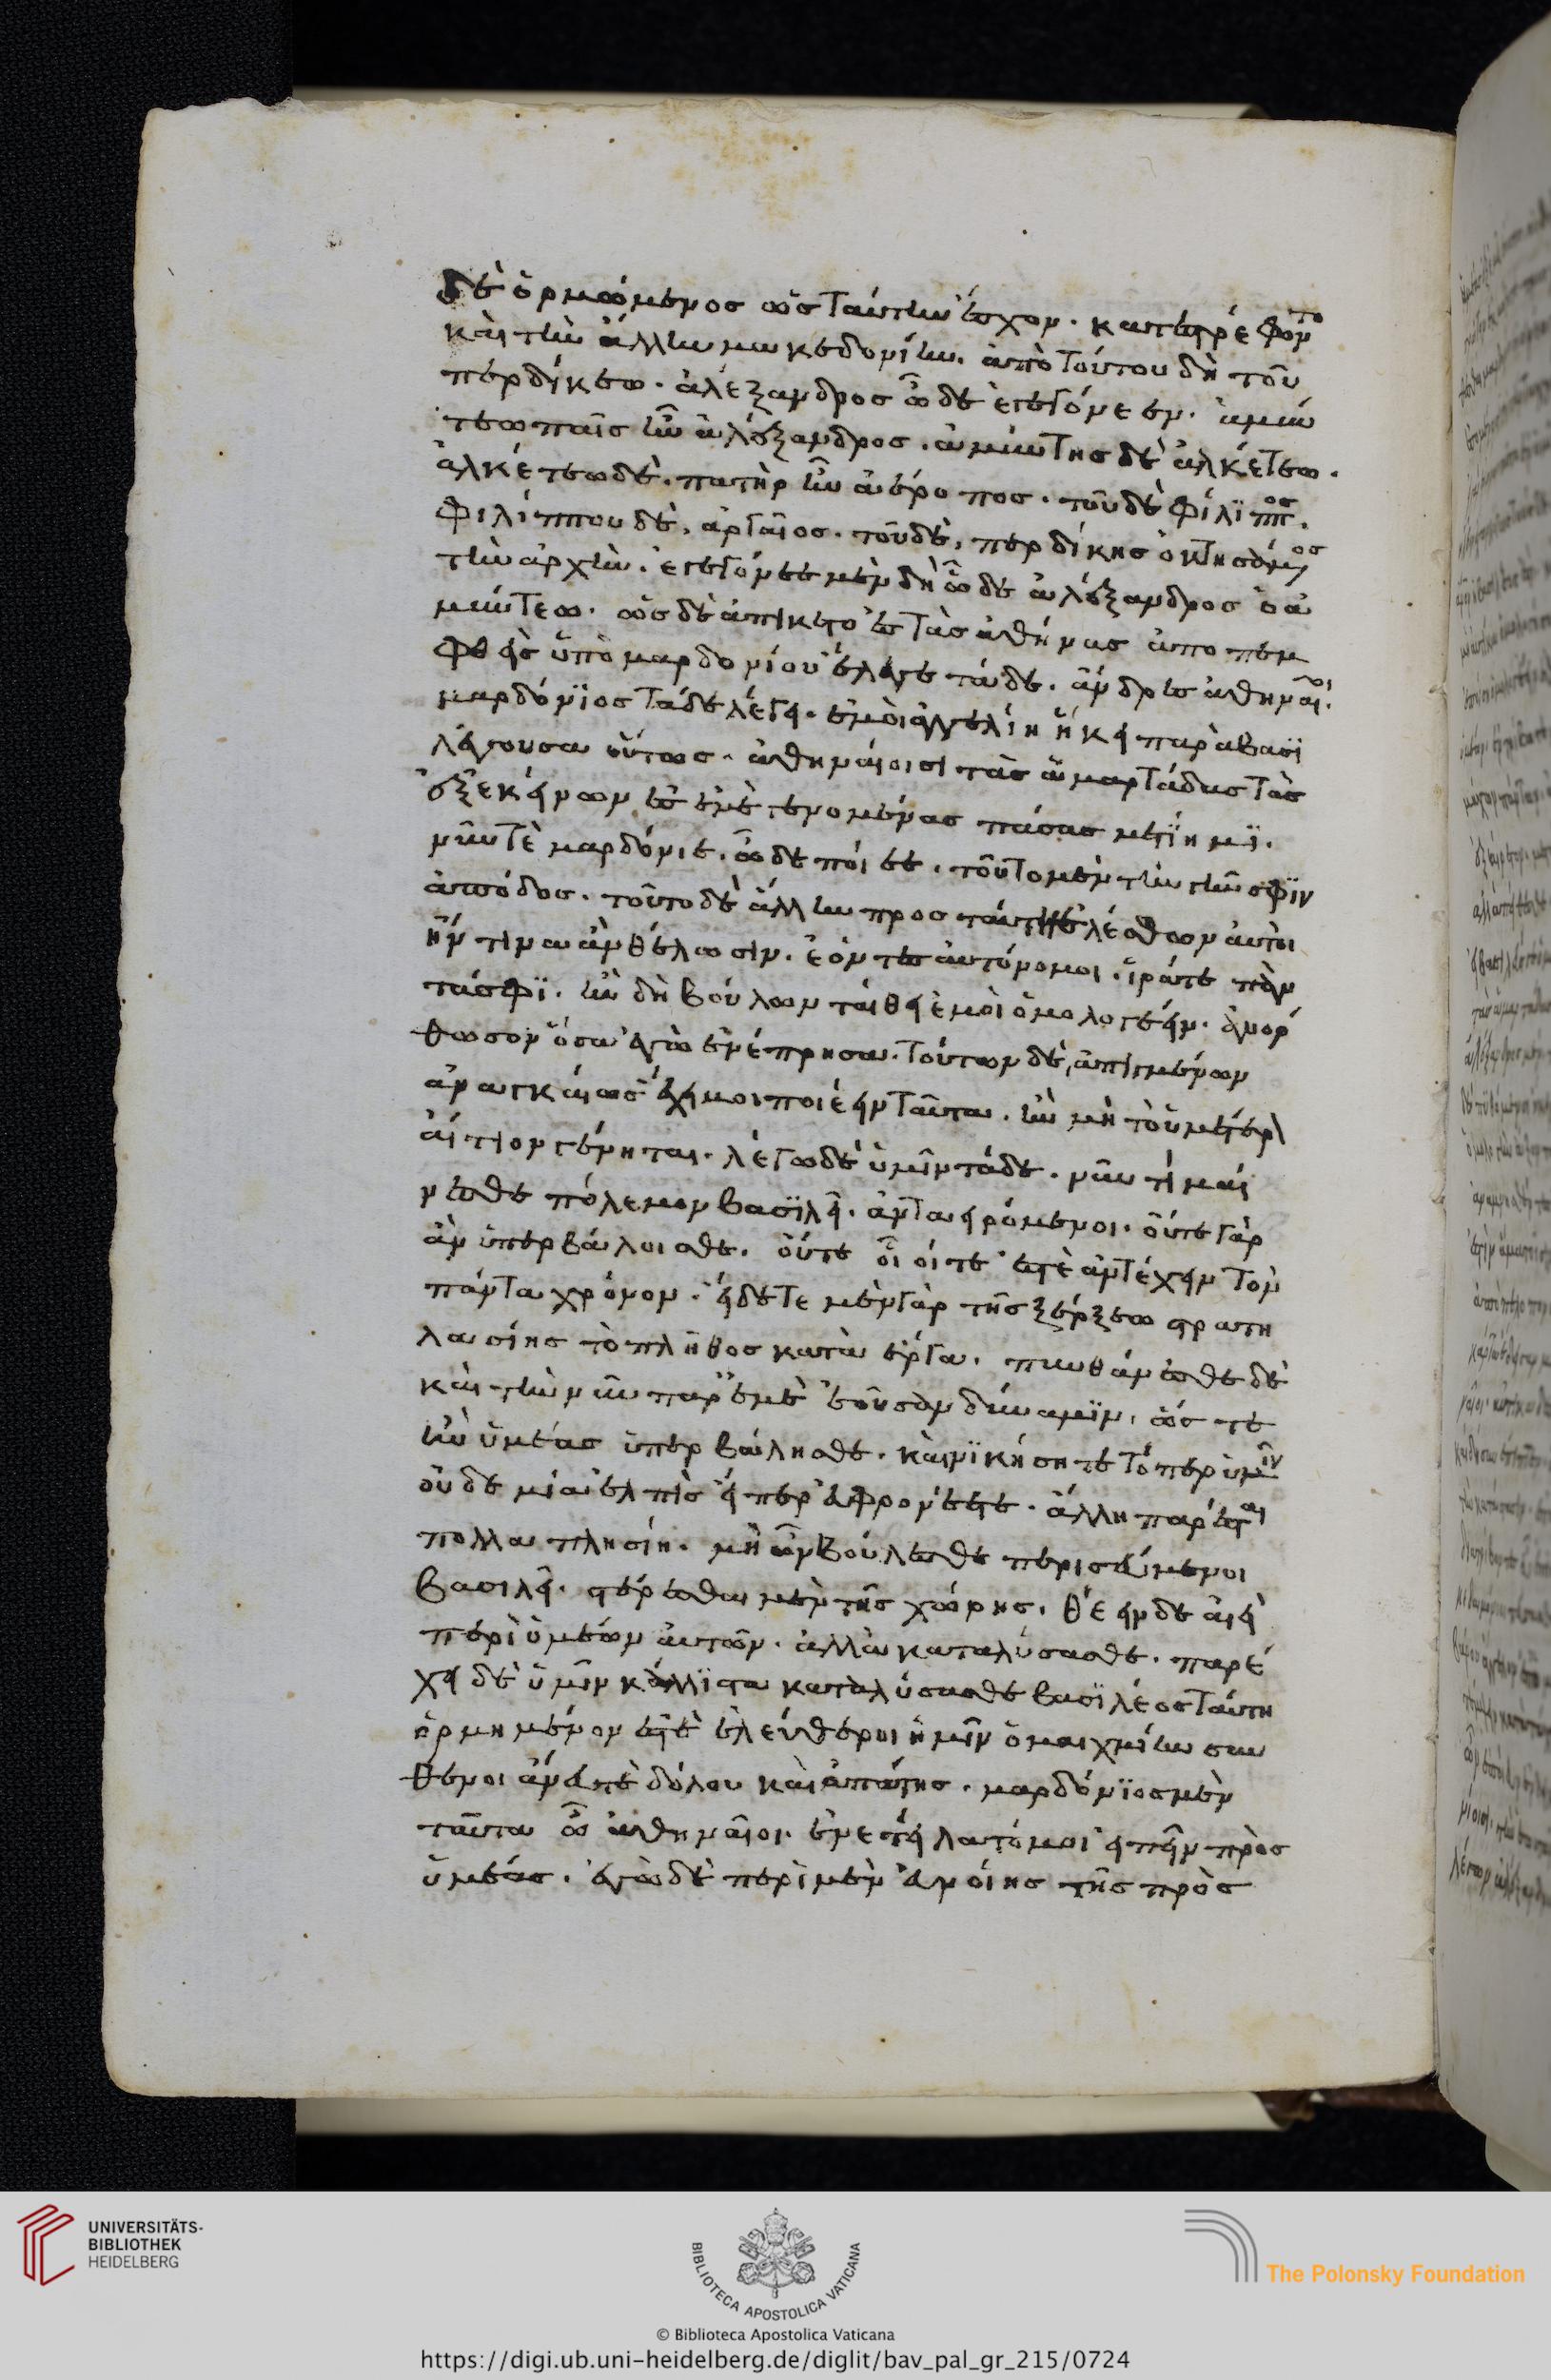 δὲ ὁρμώμενος ὡς ταύτην ἔσχον. κατεστρέφοντο
καὶ τὴν ἄλλην μακεδονίην. ἀπὸ τούτου δὴ τοῦ
περδίκεω. ἀλέξανδρος ὧδε ἐγεγόνεεν. ἀμύν
τεω παῖς ἦν ἀλέξανδρος. ἀμύντης δὲ ἀλκέτεω.
ἀλκέτεω δὲ. πατὴρ ἦν ἀέροπος. τοῦ δὲ φίλιππος.
φιλίππου δὲ, ἀργαῖος. τοῦ δὲ, περδίκης ὁ κτησάμενος
τὴν ἀρχὴν. ἐγεγόνεε μὲν δὴ ὧδε ἀλέξανδρος ὁ ἀ
μύντεω. ὡς δὲ ἀπίκετο ἐς τὰς ἀθήνας ἀποπεμ
φθεὶς ὑπὸ μαρδονίου ἔλεγε τάδε. ἄνδρες ἀθηναῖοι.
μαρδόνιος τάδε λέγει. ἐμοὶ ἀγγελίη ἥκει παρὰ βασι
λέγουσα οὕτως. ἀθηναίοισι τὰς ἁμαρτάδας τὰς
ἐξ ἐκείνων ἐς ἐμὲ γενομένας πάσας μετίημι.
νῦν τὲ μαρδόνιε. ὧδε ποίεε. τοῦτο μὲν τὴν γῆν σφιν
ἀπόδος. τοῦτο δὲ ἄλλην προς ταύτῃ ἑλέσθων αὐτοὶ
ἥν τινα ἂν θέλωσιν. ἐόντες αὐτόνομοι. ἱρά τε πάν
τά σφι. ἢν δὴ βούλωνταί θ ἐμοὶ ὁμολογέειν. ἀνόρ
θωσον ὅσα ἐγὼ ἐνέπρησα. τούτων δὲ, ἀπιγμένων
ἀναγκαίως ἔχει μοι ποιέειν ταῦτα. ἢν μὴ τὸ ὑμέτερον
αἴτιον γένηται. λέγω δὲ ὑμῖν τάδε. νῦν τί μαί
νεσθε πόλεμον βασιλεῖ. ἀνταειρόμενοι. οὔτε γὰρ
ἂν ὑπερβάλοισθε. οὔτε οἷοί τε ἐστὲ ἀντέχειν τὸν
πάντα χρόνον. εἴδετε μὲν γὰρ τῆς ξέρξεω στρατη
λασίης τὸ πλῆθος κατὰ ἔργα. πυνθάνεσθε δὲ
καὶ τὴν νῦν παρ' ἐμὲ ἐοῦσαν δύναμιν. ὥς τε
ἢν ὑμέας ὑπερβάλησθε. καὶ νικήσητε τό περ ὑμῖν
οὐδεμία ἐλπὶς εἴ περ εὖ φρονέετε. ἄλλη παρέσται
πολλαπλησίη. μὴ ὦν βούλεσθε περισεύμενοι
βασιλεῖ. στέρεσθαι μὲν τῆς χώρης. θέειν δὲ αἰεὶ
περὶ ὑμέων αὐτῶν. ἀλλὰ καταλύσασθε. παρέ
χει δὲ ὑμῖν κάλλιστα καταλύσασθε βασιλέος ταύτῃ
ὁρμημένου ἐστὲ ἐλεύθεροι ἡμῖν ὁμαιχμίην συν
θέμενοι ἄνευ τὲ δόλου καὶ ἀπάτης. μαρδόνιος μὲν
ταῦτα ὦ ἀθηναῖοι. ἐνετείλατό μοι εἰπεῖν πρὸς
ὑμέας. ἐγὼ δὲ περὶ μὲν εὐνοίης τῆς πρὸς
UNIVERSITÄTS-
BIBLIOTHEK
HEIDELBERG
BIBLIOTECA APOSTOLICA VATICANA
The Polonsky Foundation
© Biblioteca Apostolica Vaticana
https://digi.ub.uni-heidelberg.de/diglit/bav_pal_gr_215/0724